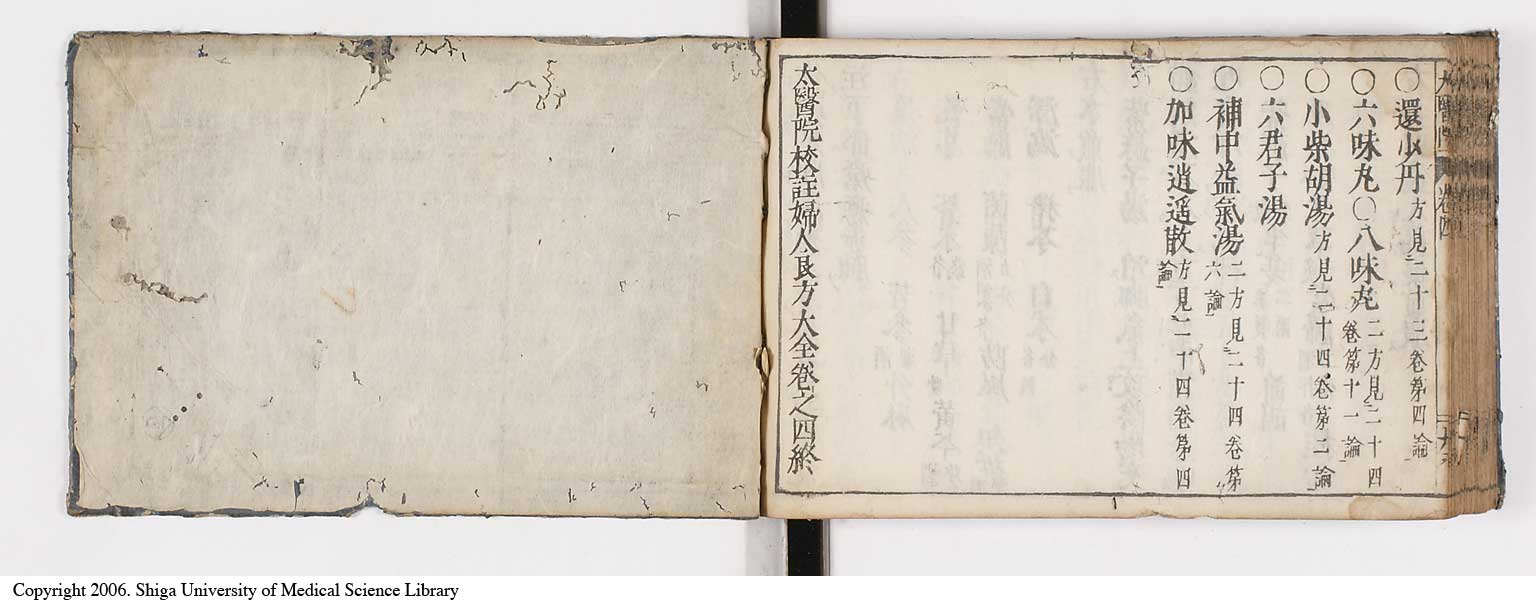 ○還少丹方見二十三卷第四論
○六味丸○八味丸二方見二十四卷第十一論
○小柴胡湯方見二十四卷第二論
○六君子湯
○補中益氣湯二方見二十四卷第六論
○加味逍遥散方見二十四卷第四論
太醫院校註婦人良方大全卷之四終
Copyright 2006. Shiga University of Medical Science Library